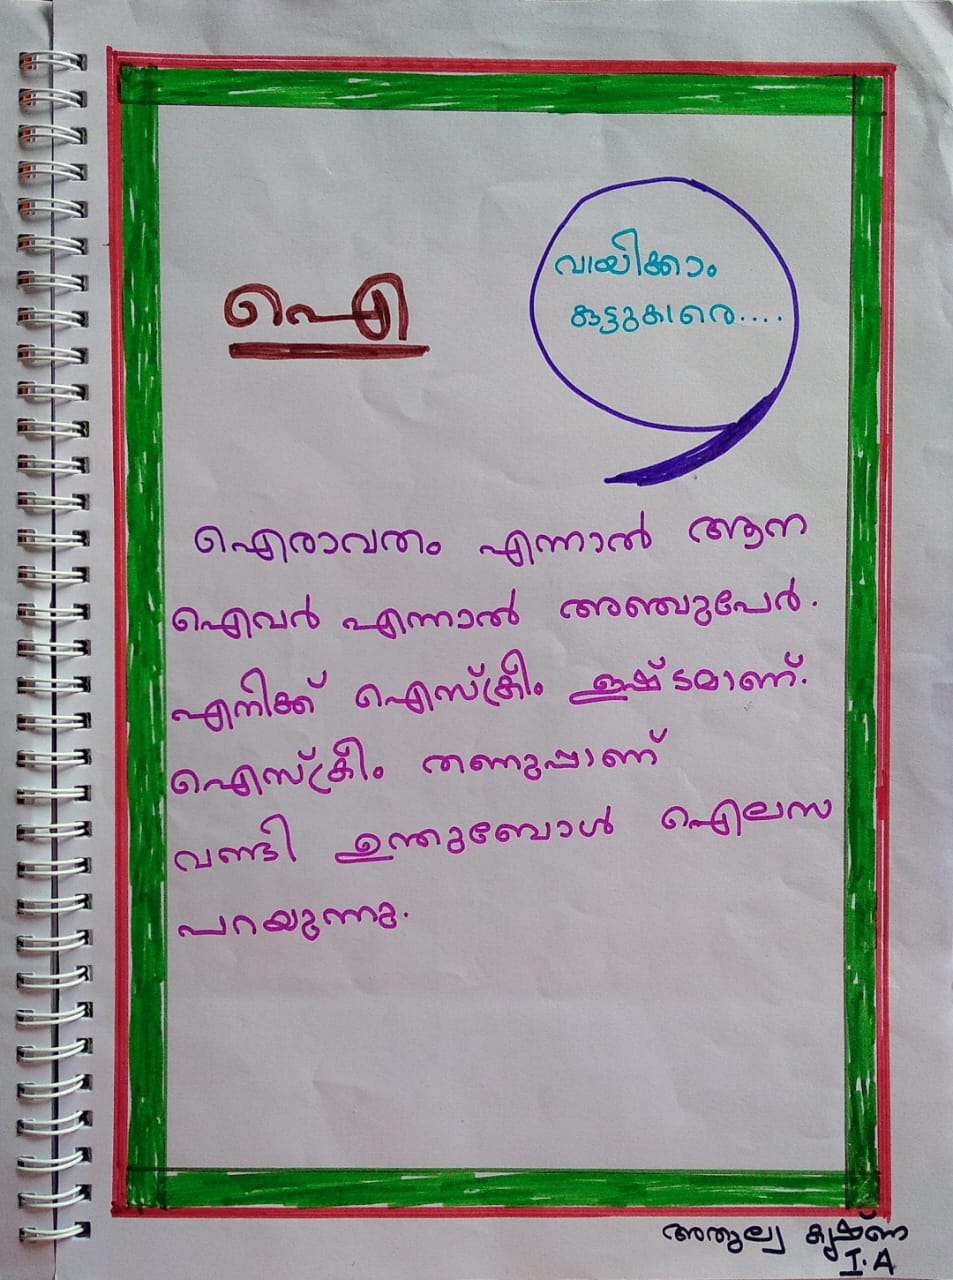 ഐ
വായിക്കാം
കൂട്ടുകാരെ....
ഐരാവതം എന്നാൽ ആന
ഐവർ എന്നാൽ അഞ്ചുപേർ.
എനിക്ക് ഐസ്ക്രീം ഇഷ്ടമാണ്.
ഐസ്ക്രീം തണുപ്പാണ്
വണ്ടി ഉന്തുബോൾ ഐലസ
പറയുന്നു.
അതുല്യ കൃഷ്ണ
I.A